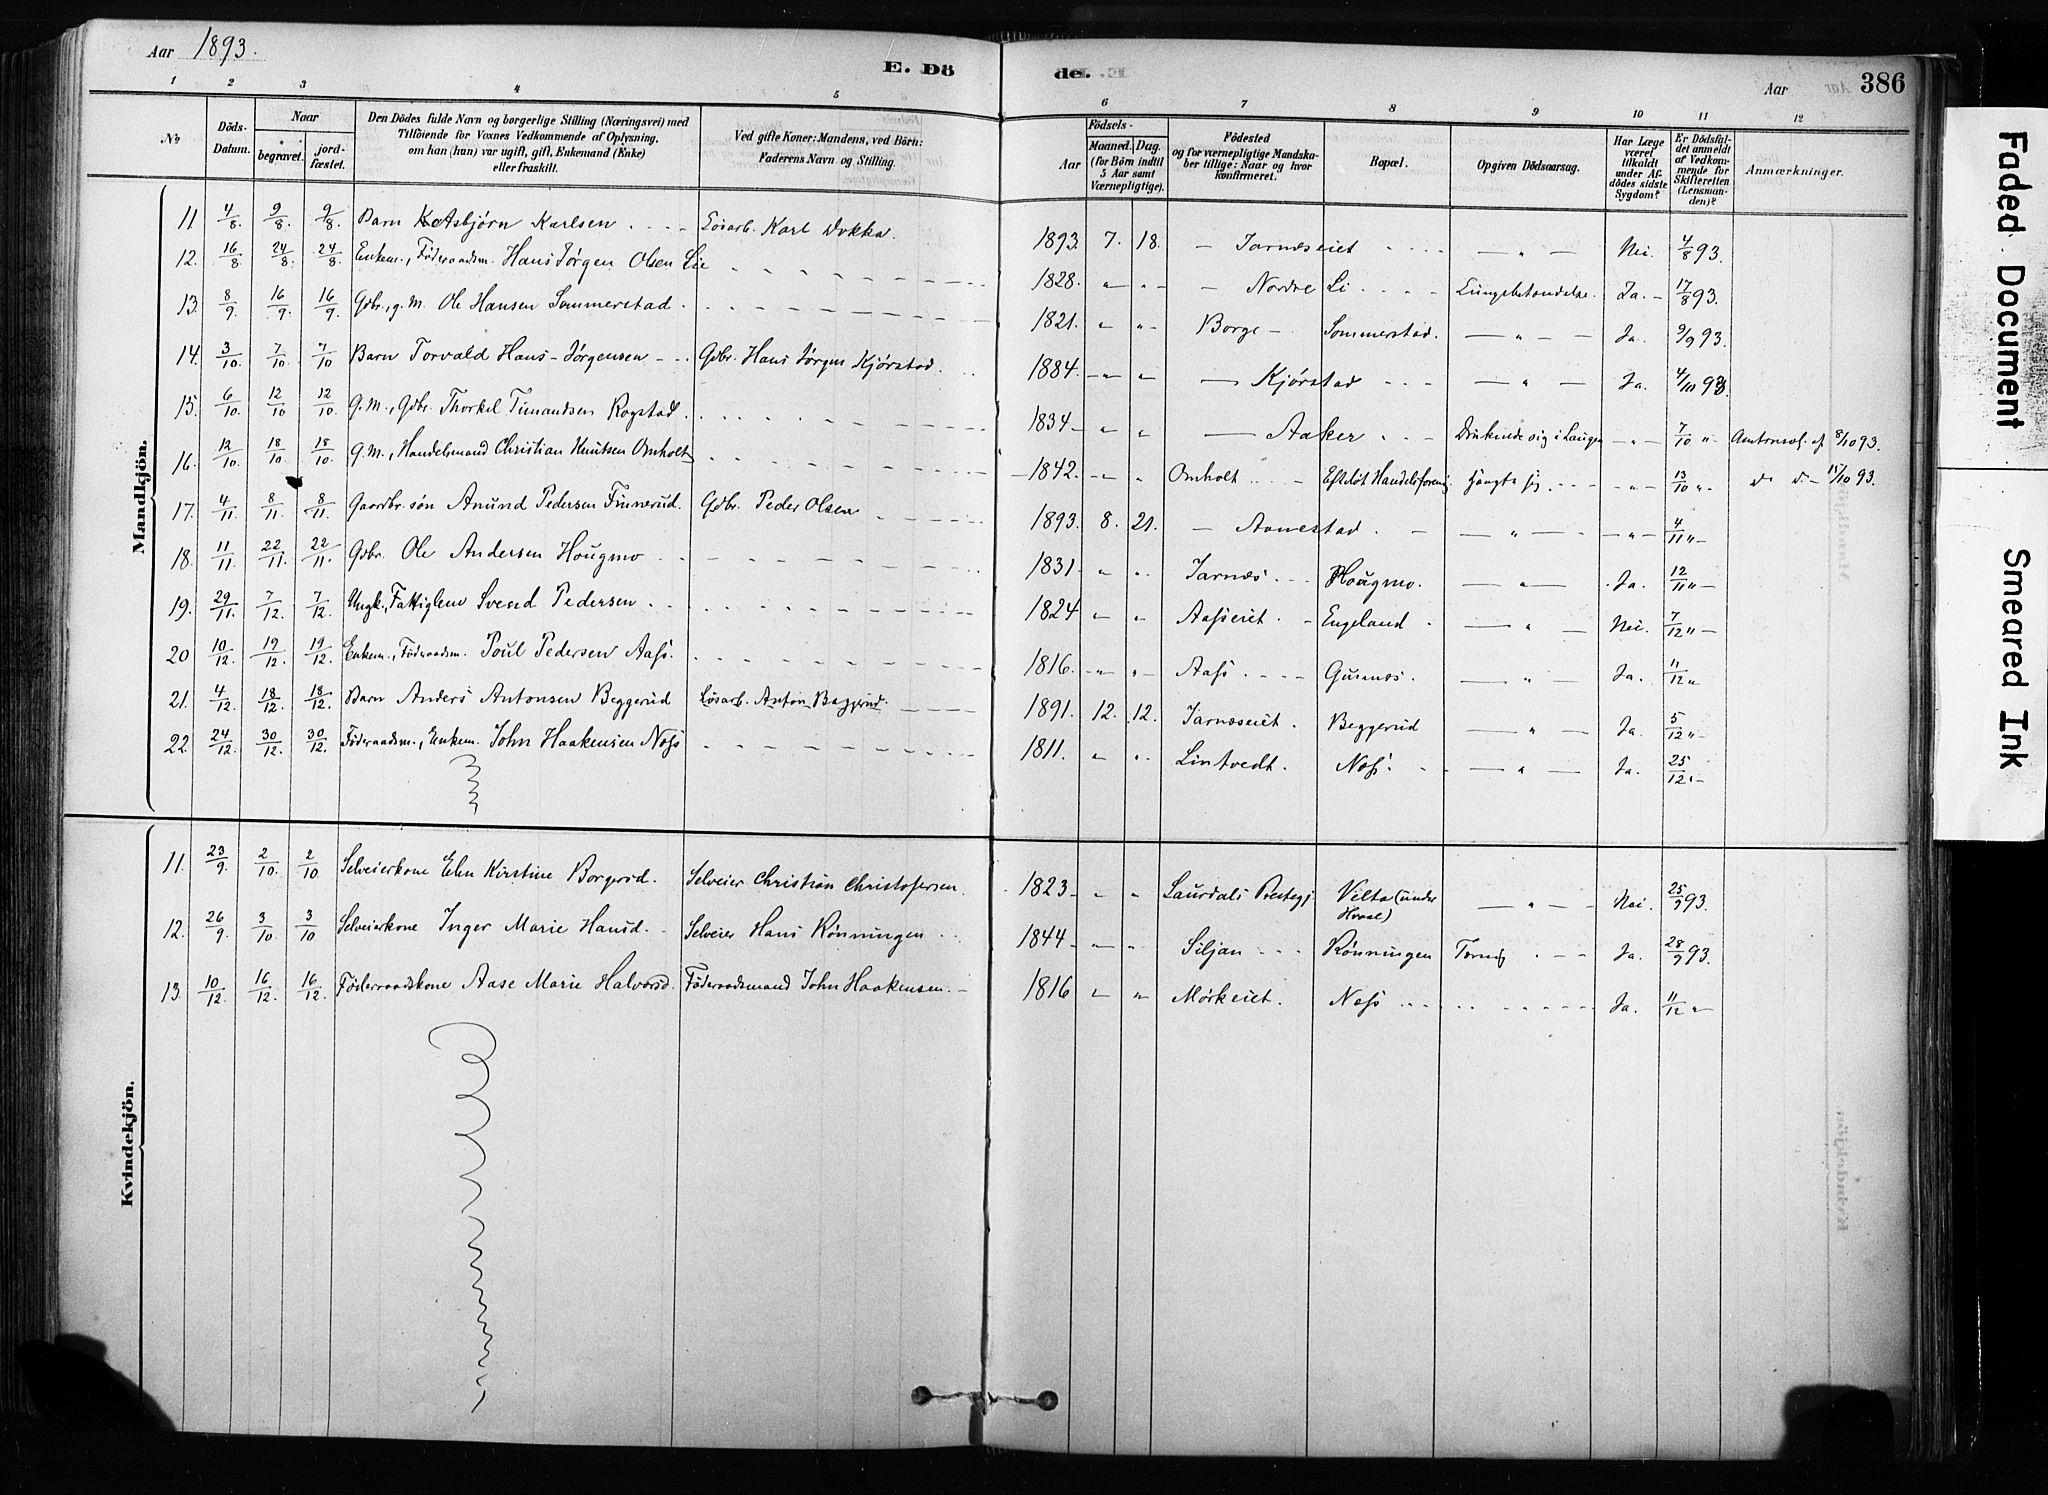 Aar 1893.
E. Dö
de.
Aar
386
1 2 3 4 5 6 7 8 9 10 11 12
No
Döds-Datum.
Naar
begravet.
jord-fæstet.
Den Dödes fulde Navn og borgerlige Stilling (Næringsvei) med
Tilföiende for Voxnes Vedkommende af Oplysning,
om han (hun) var ugift, gift, Enkemand (Enke)
eller fraskilt.
Ved gifte Koner: Mandens, ved Börn:
Faderens Navn og Stilling.
Födsels-
Aar
Maaned. Dag.
(for Börn indtil
5 Aar samt
Værnepligtige).
Födested
og for værnepligtige Mandska-
ber tillige: Naar og hvor
konfirmeret.
Bopæl.
Opgiven Dödsaarsag.
Har Læge
været
tilkaldt
under Af-
dödes sidste
Sygdom?
Er Dödsfal-
det anmeldt
af Vedkom-
mende for
Skifteretten
(Lensman-
den)?
Anmærkninger.
Mandkjön.
11. 4/8. 9/8. 9/8. Barn Asbjørn Karlsen Løsarb. Karl Dokka. 1893 7. 18. – Jarnæseiet – " – Nei. 4/8 93.
12. 16/8 24/8. 24/8. Enkem., Föderaadsm. Hans Jørgen Olsen Lie 1828. " " – Nordre Li Lungebetændelse. Ja. – 17/8 93.
13. 8/9 16/9. 16/9. Gdbr., g. M. Ole Hansen Sommerstad 1821. " " – Borge – Sommerstad. – " – Ja. 9/9 93.
14. 3/10. 7/10 7/10 Barn Torvald Hans-Jørgensen Gdbr. Hans Jørgen Kjørstad 1884. – " – " — Kjørstad – " – Ja. 4/10 93.
15. 6/10. 12/10 12/10. G. M., Gdbr. Thorkel Timandsen Rogstad 1834 – " " — Aaker Druknede sig i Laugen – " – 7/10 " Amtmand. af 8/10 93.
16. 12/10. 18/10 18/10 G. M., Handelsmand Christian Knutsen Omholt 1842. – " – " Omholt Efteløt Handelsforening Hængte sig – " – 13/10 " – do do – 15/10 93.
17. 4/11. 8/11. 8/11. Gaardbr. søn Anund Pedersen Finnerud. Gdbr. Peder Olsen 1893. 8. 21. – Avnestad – " – – " – 4/11 " –
18. 11/11. 22/11. 22/11. Gdbr. Ole Andersen Hougmo 1831. " " Jarnæs Hougmo. – " – Ja. 12/11 " –
19. 29/11. 7/12 7/12 Ungk., Fattiglem Svend Pedersen 1824 " " Aasseiet. – Engeland – " – Nei. 7/12 " –
20 10/12. 19/12. 19/12. Enkem., Föderaadsm. Poul Pedersen Aass. 1816. – " – " Aass Gusnæs. – " – Ja. 11/12 "
21. 4/12. 18/12. 18/12. Barn Anders Antonsen Beggerud Løsarb. Anton Beggerud. 1891. 12. 12. Jarnæseiet. Beggerud – " – Ja. 5/12 " –
22 24/12. 30/12. 30/12. Föderaadsm., Enkem. John Haakensen Næss 1811. " " Lintvedt. Næss. – " – Ja. 25/12 " –
Kvindekjön.
11. 23/9. 2/10. 2/10 Selveierkone Elen Kirstine Borgersd. Selveier Christian Christofersen. 1823 – " " Laurdals Prestegj. Velta (under Hvaal) – " – Nei. 25/9 93.
12. 26/9. 3/10. 3/10 Selveierkone Inger Marie Hansd. Selveier Hans Rønningen 1844 – " " Siljan Rønningen Ja. 28/9 93.
13. 10/12. 16/12. 16/12. Föderaadskone Aase Marie Halvorsd. Föderaadsmand John Haakensen. 1816 " " Mørkeiet. Næss Ja. 11/12 " –
Faded Document
Smeared Ink